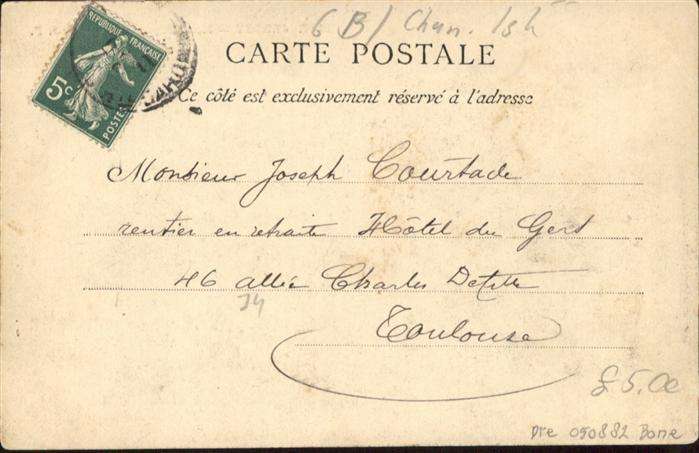 6 B/ Chan.
CARTE POSTALE
RÉPUBLIQUE FRANÇAISE
5c
POSTES
Ce côté est exclusivement réservé à l'adresse
Monsieur Joseph Courtade
rentier en retraite Hôtel du Gers
46 allée Charles
34
Toulouse
£5.00
090882 Bone